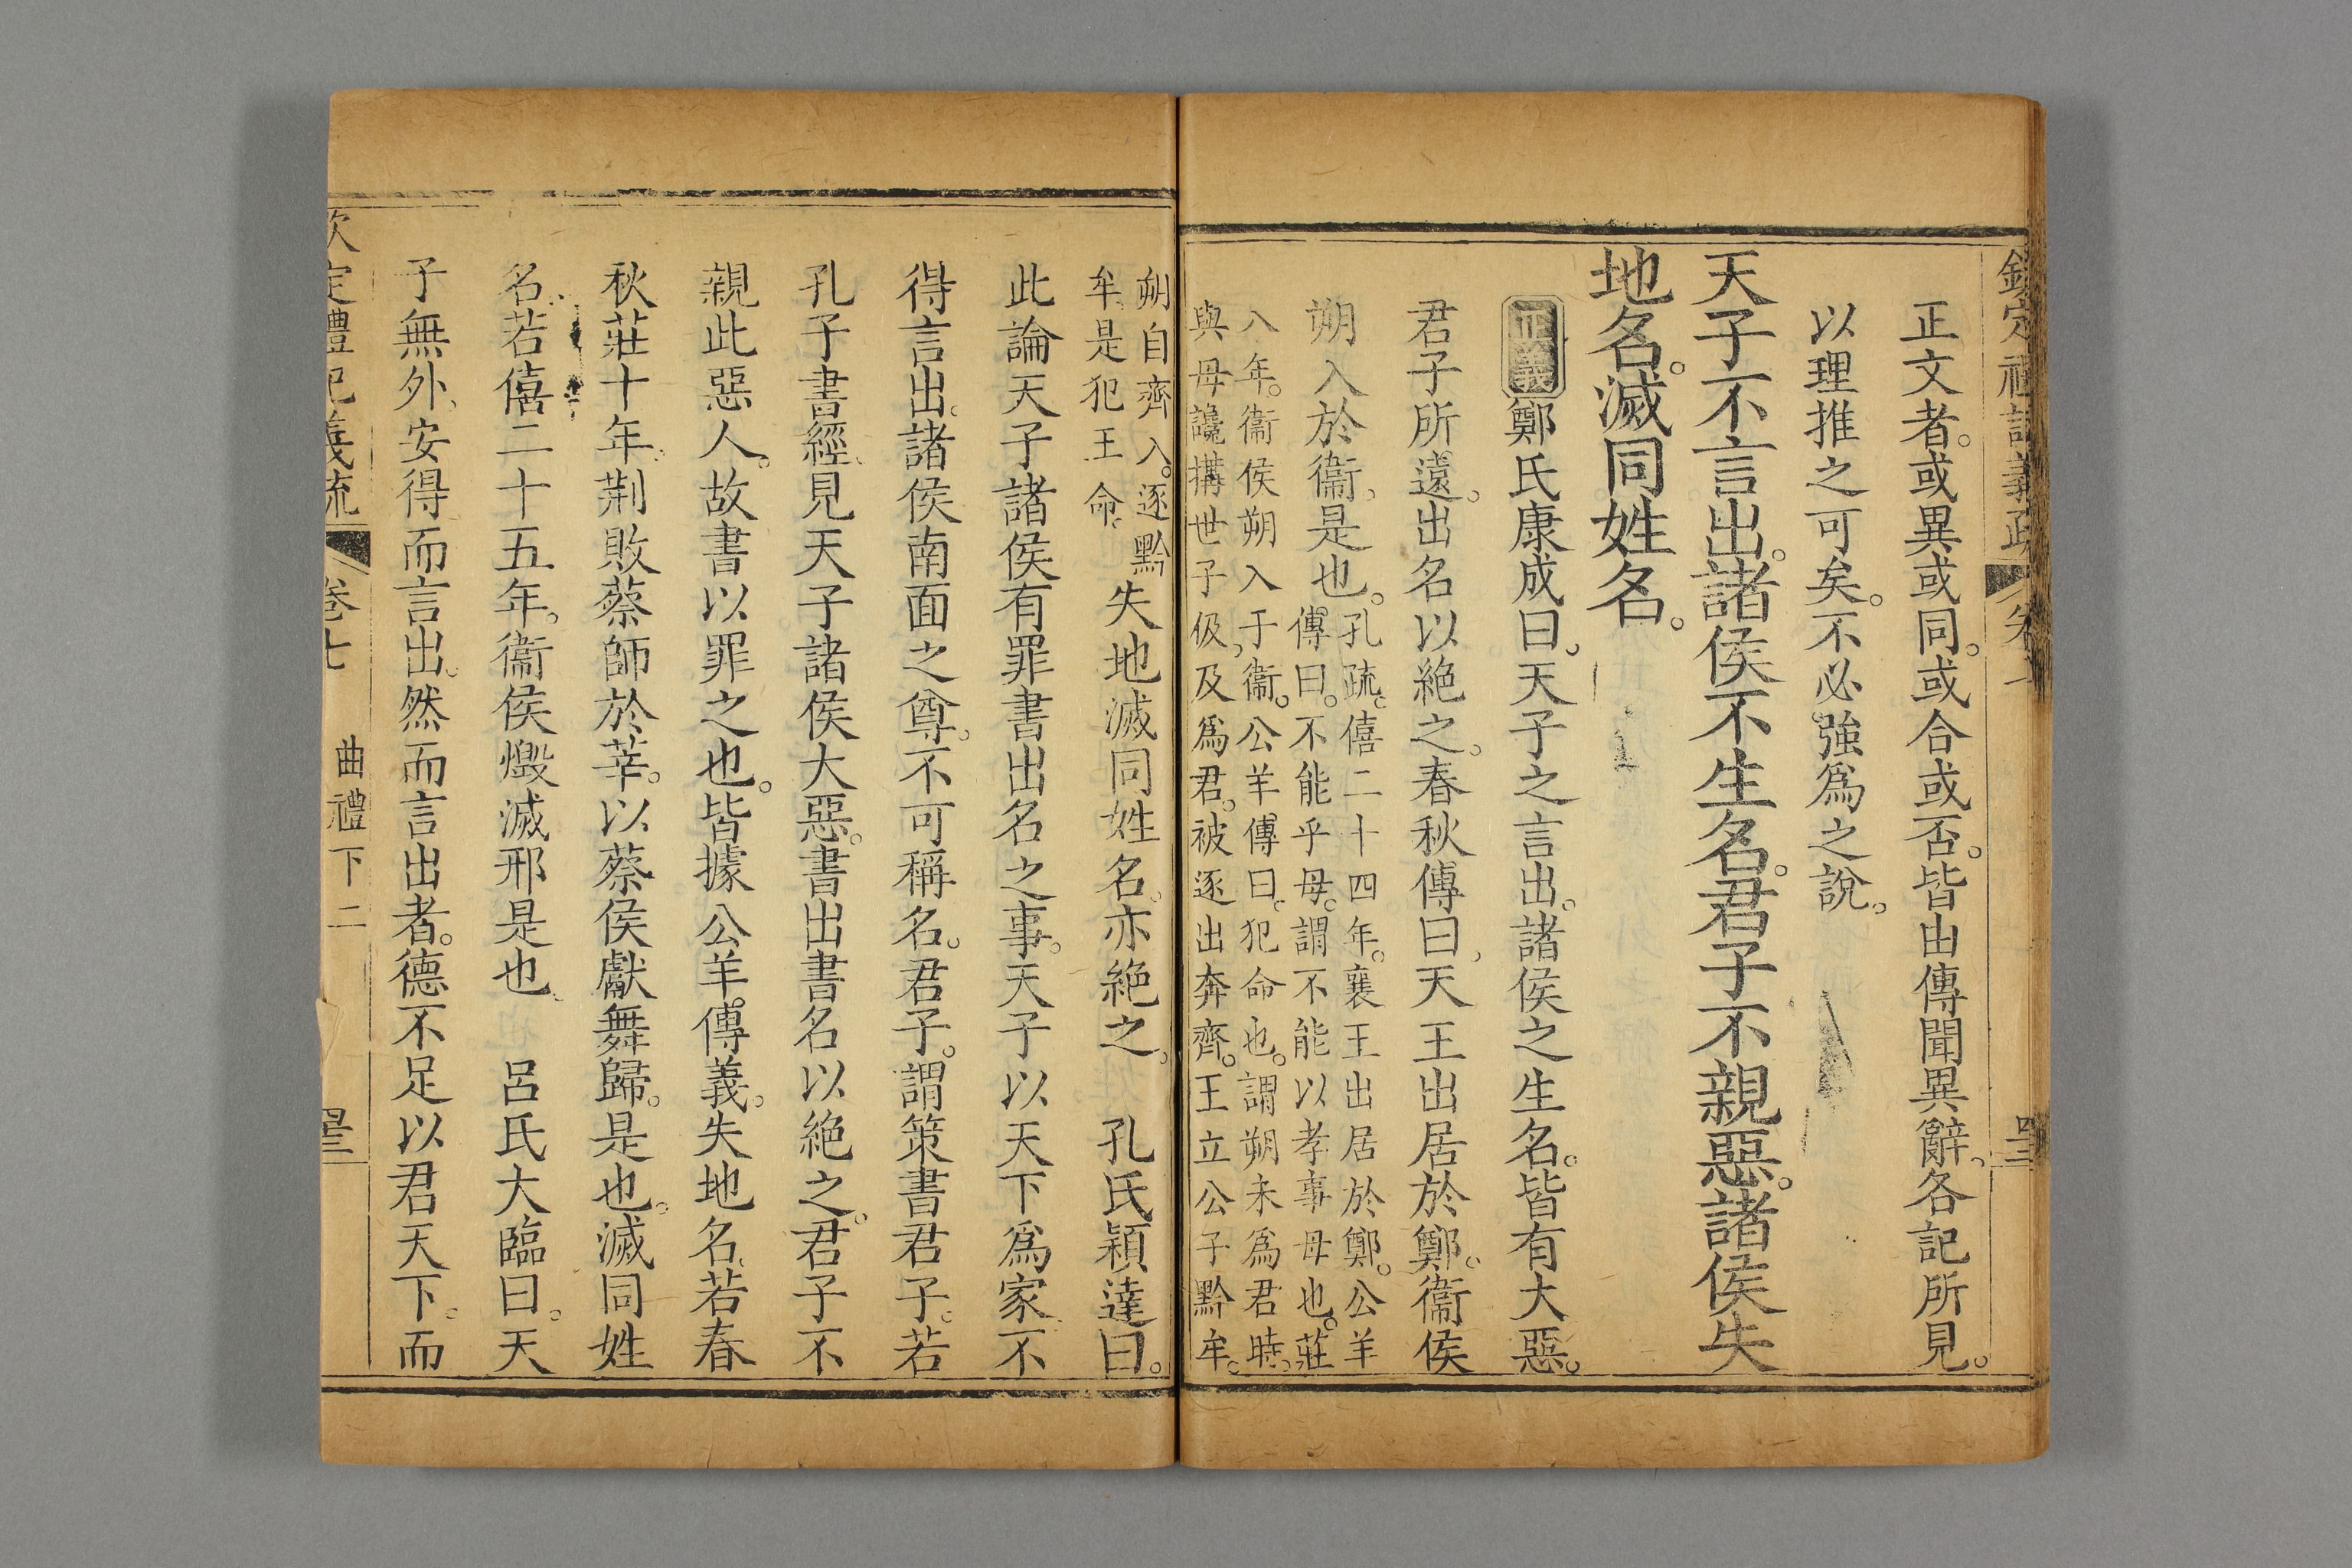 正文者。或異或同。或合或否。皆由傳聞異辭。各記所見。
以理推之可矣。不必強爲之說。
天子不言出。諸侯不生名。君子不親惡。諸侯失
地名。滅同姓名。
正義 鄭氏康成曰。天子之言出。諸侯之生名。皆有大惡。
君子所遠。出名以絶之。春秋傳曰。天王出居於鄭。衞侯
朔入於衞。是也。
孔疏。僖二十四年。襄王出居於鄭。公羊
傳曰。不能乎母。謂不能以孝事母也。莊
八年。衞侯朔入于衞。公羊傳曰。犯命也。謂朔未爲君時。
與母讒搆世子伋。及爲君。被逐出奔齊。王立公子黔牟。
朔自齊入。逐黔
牟。是犯王命。
失地滅同姓名。亦絶之。　孔氏穎達曰。
此論天子諸侯有罪書出名之事。天子以天下爲家。不
得言出。諸侯南面之尊。不可稱名。君子。謂策書君子。若
孔子書經。見天子諸侯大惡。書出書名以絶之。君子不
親此惡人。故書以罪之也。皆據公羊傳義。失地名。若春
秋莊十年。荆敗蔡師於莘。以蔡侯獻舞歸。是也。滅同姓
名。若僖二十五年。衞侯燬滅邢是也。　呂氏大臨曰。天
子無外。安得而言出。然而言出者。德不足以君天下。而
欽定禮記義疏　卷七　曲禮下二